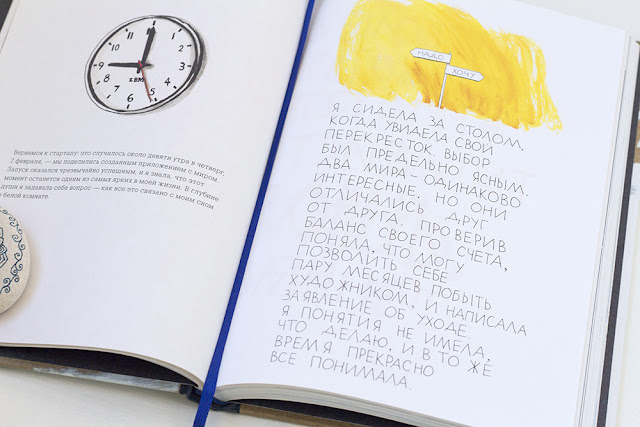 12
1
2
3
4
5
6
7
8
9
10
11
IBM
Вернемся к стартапу: это случилось около девяти утра в четверг,
7 февраля, — мы поделились созданным приложением с миром.
Запуск оказался чрезвычайно успешным, и я знала, что этот
момент останется одним из самых ярких в моей жизни. В глубине
души я задавала себе вопрос — как все это связано с моим сном
о белой комнате.
НАДО
ХОЧУ
Я СИДЕЛА ЗА СТОЛОМ,
КОГДА УВИДЕЛА СВОЙ
ПЕРЕКРЕСТОК. ВЫБОР
БЫЛ ПРЕДЕЛЬНО ЯСНЫМ.
ДВА МИРА – ОДИНАКОВО
ИНТЕРЕСНЫЕ, НО ОНИ
ОТЛИЧАЛИСЬ ДРУГ
ОТ ДРУГА. ПРОВЕРИВ
БАЛАНС СВОЕГО СЧЕТА,
ПОНЯЛА, ЧТО МОГУ
ПОЗВОЛИТЬ СЕБЕ
ПАРУ МЕСЯЦЕВ ПОБЫТЬ
ХУДОЖНИКОМ, И НАПИСАЛА
ЗАЯВЛЕНИЕ ОБ УХОДЕ.
Я ПОНЯТИЯ НЕ ИМЕЛА,
ЧТО ДЕЛАЮ, И В ТО ЖЕ
ВРЕМЯ ПРЕКРАСНО
ВСЕ ПОНИМАЛА.